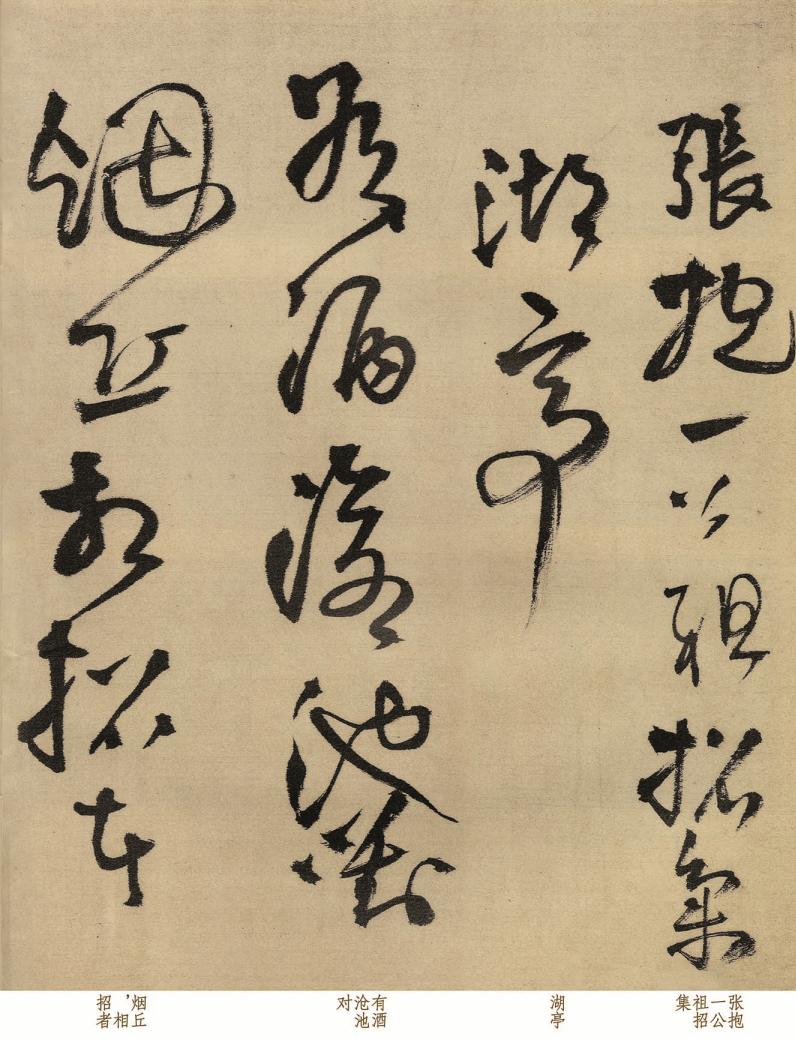 張抱一公祖招集
湖亭
有酒滄池對
烟丘相招者
张抱
一公
祖招
集
湖亭
有酒
沧池
对
烟丘
，相
招者